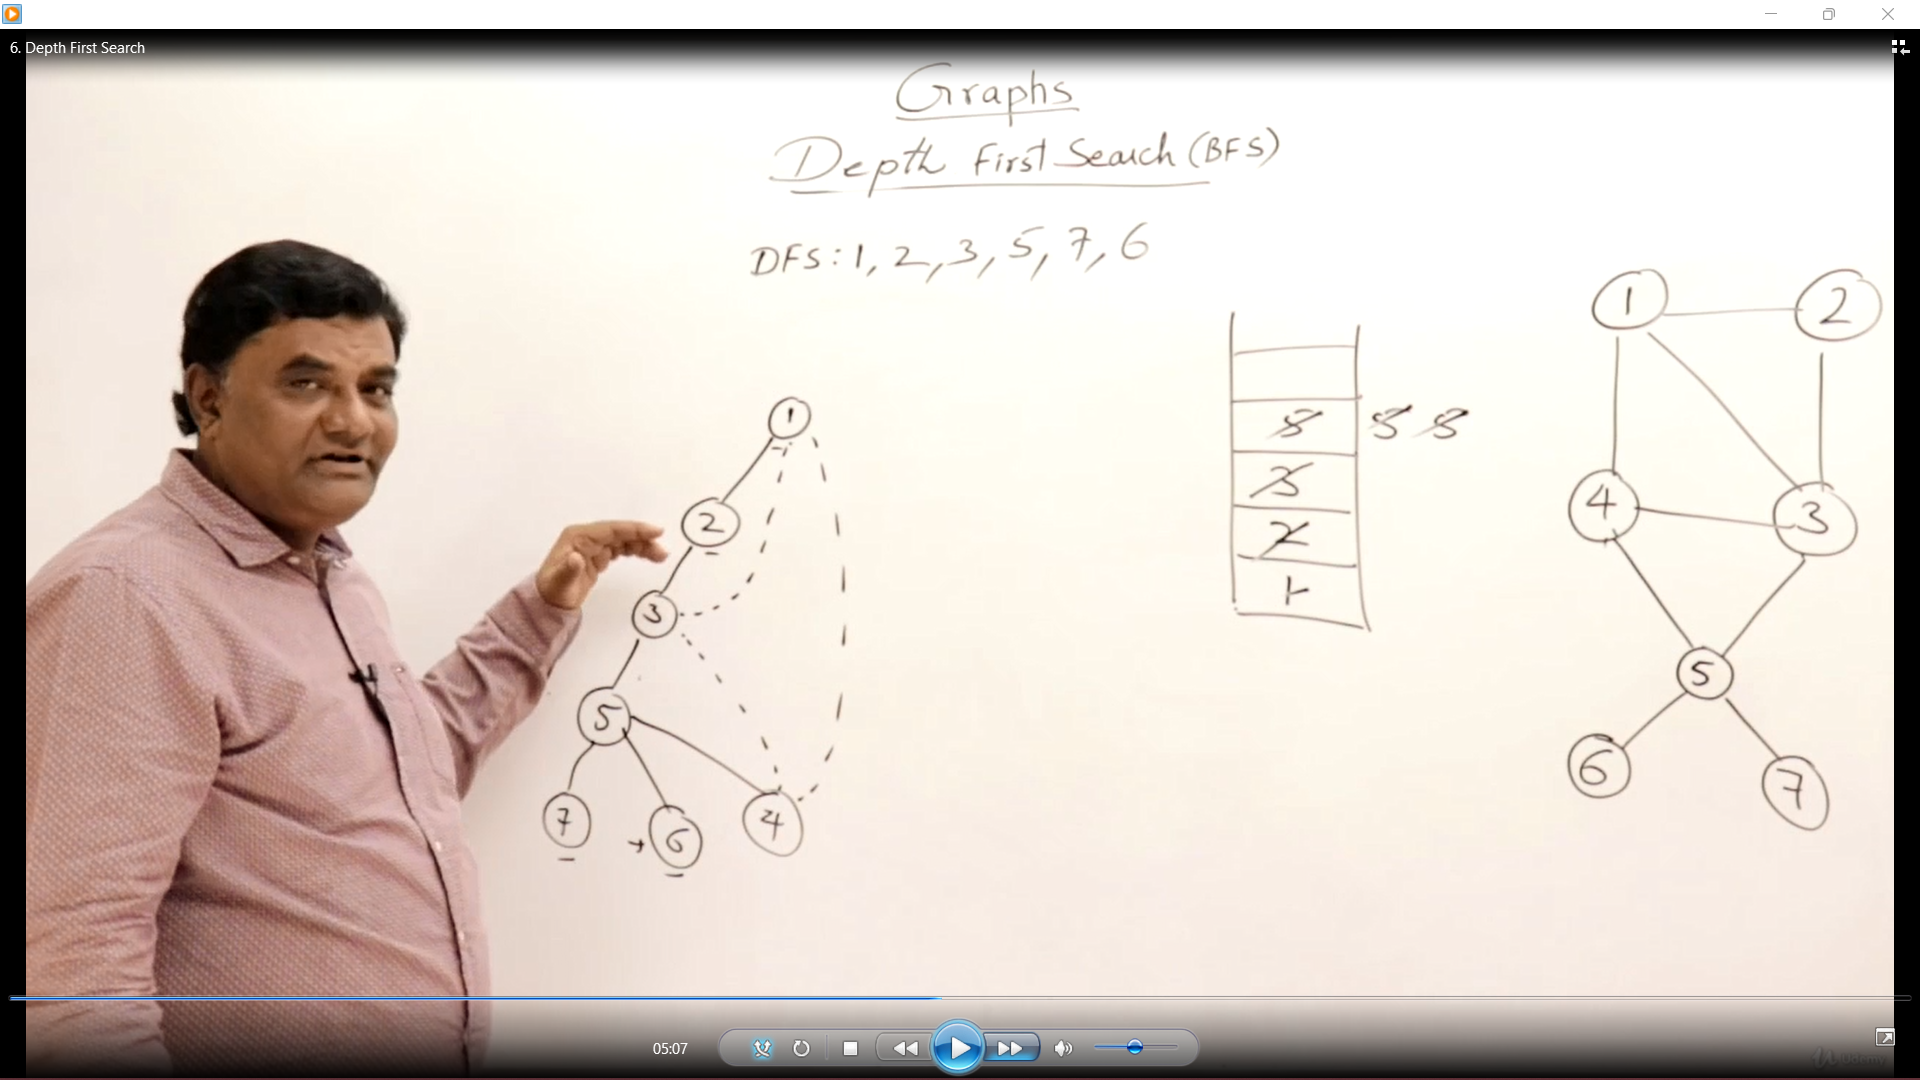 6. Depth First Search
Graphs
Depth First Search (BFS)
DFS: 1, 2, 3, 5, 7, 6
1
2
3
5
7
6
4
5 5 5
3
2
1
1
2
4
3
5
6
7
05:07
Udemy